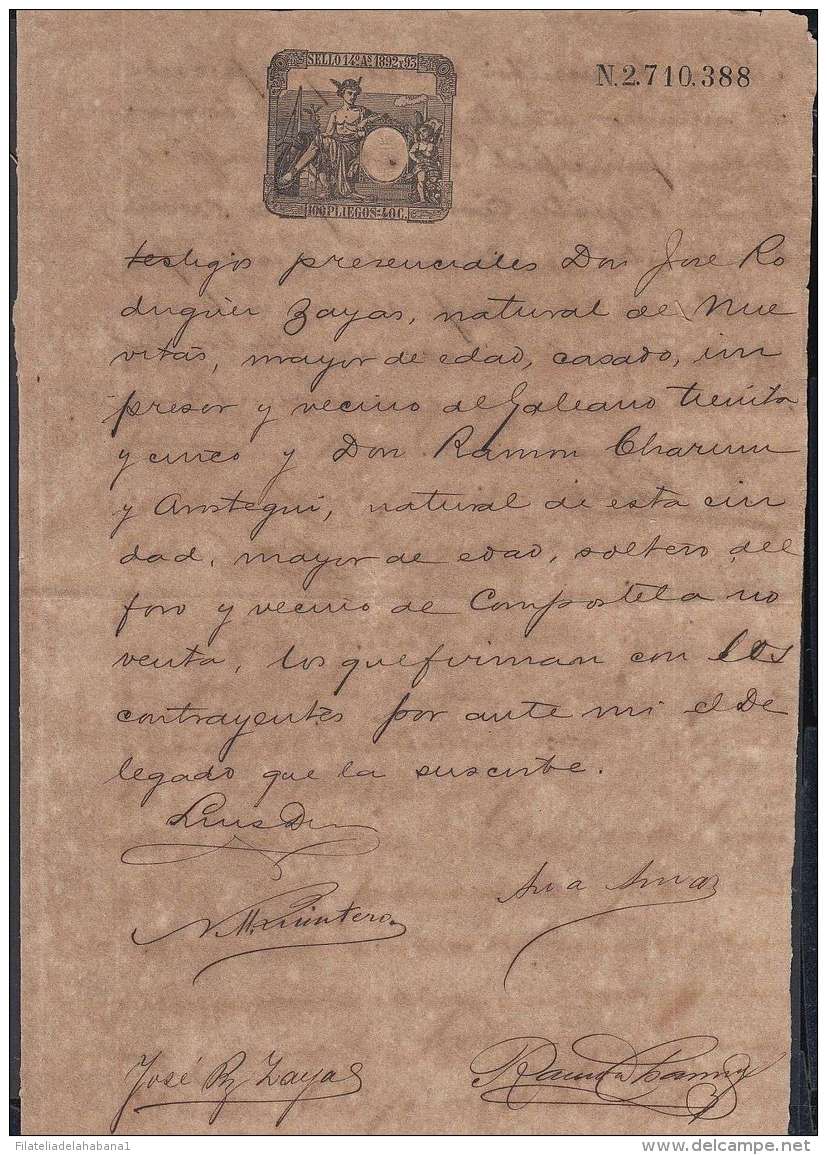 SELLO 14º Aº 1892 y 93
N.2.710.388
100 PLIEGOS: 40 C.
testigos presenciales Don Jose Ro
driguez Zayas, natural de Nue
vitas, mayor de edad, casado, im
presor y vecino de Galeano treinta
y cinco y Don Ramon Charun
y Arostegui, natural de esta ciu
dad, mayor de edad, soltero, del
foro y vecino de Compostela no
venta, los que firman con los
contrayentes por ante mi el De
legado que la suscribe.
Luis
N. M. Quintero
José Rz Zayas
Ramon
Filateliadelahabana1
delcampe.net